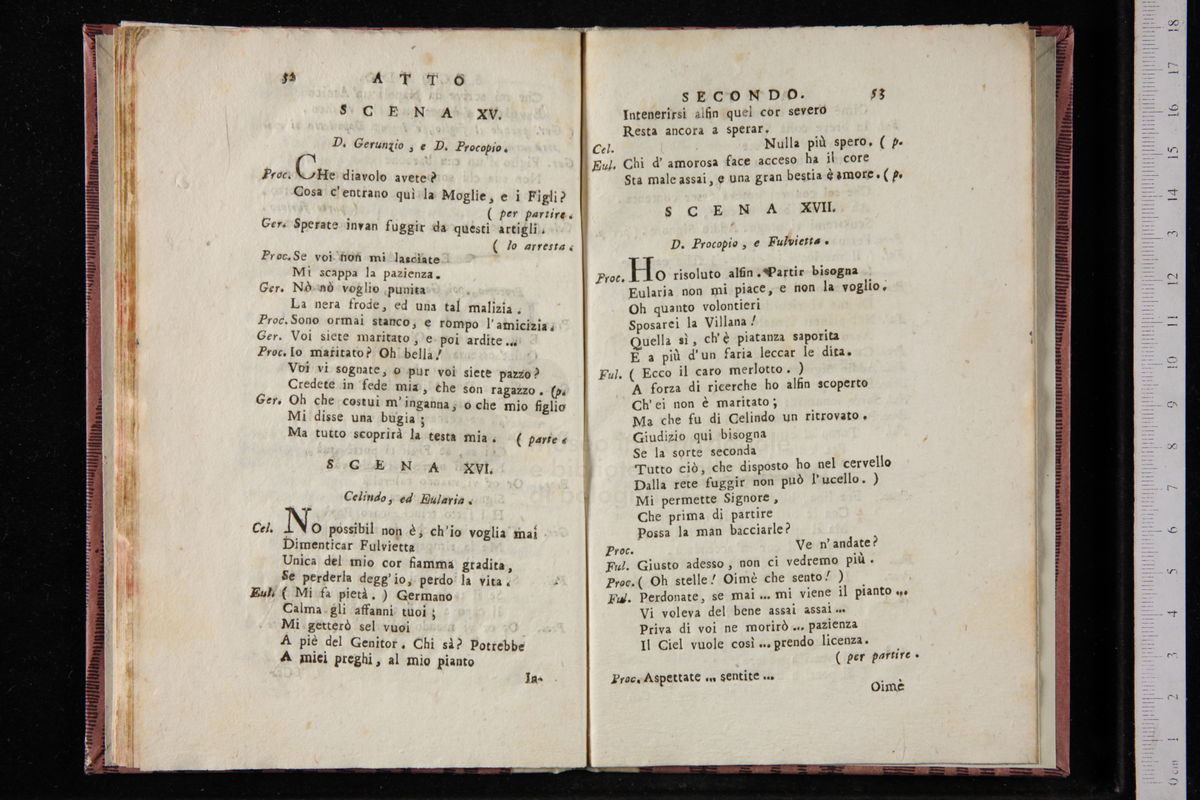 52 ATTO
SCENA XV.
D. Gerunzio, e D. Procopio.
Proc. CHe diavolo avete?
Cosa c'entrano quì la Moglie, e i Figli?
( per partire.
Ger. Sperate invan fuggir da questi artigli.
( lo arresta.
Proc. Se voi non mi lasciate
Mi scappa la pazienza.
Ger. Nò nò voglio punita
La nera frode, ed una tal malizia.
Proc. Sono ormai stanco, e rompo l'amicizia.
Ger. Voi siete maritato, e poi ardite...
Proc. Io maritato? Oh bella!
Voi vi sognate, o pur voi siete pazzo?
Credete in fede mia, che son ragazzo. (p.
Ger. Oh che costui m'inganna, o che mio figlio
Mi disse una bugia;
Ma tutto scoprirà la testa mia. ( parte.
SCENA XVI.
Celindo, ed Eularia.
Cel. No possibil non è, ch'io voglia mai
Dimenticar Fulvietta
Unica del mio cor fiamma gradita,
Se perderla degg'io, perdo la vita.
Eul. ( Mi fa pietà. ) Germano
Calma gli affanni tuoi;
Mi getterò sel vuoi
A piè del Genitor. Chi sà? Potrebbe
A miei preghi, al mio pianto
In-
SECONDO. 53
Intenerirsi alfin quel cor severo
Resta ancora a sperar.
Cel. Nulla più spero. ( p.
Eul. Chi d'amorosa face acceso ha il core
Sta male assai, e una gran bestia è amore. ( p.
SCENA XVII.
D. Procopio, e Fulvietta.
Proc. Ho risoluto alfin. Partir bisogna
Eularia non mi piace, e non la voglio.
Oh quanto volontieri
Sposarei la Villana!
Quella sì, ch'è piatanza saporita
E a più d'un faria leccar le dita.
Ful. ( Ecco il caro merlotto. )
A forza di ricerche ho alfin scoperto
Ch'ei non è maritato;
Ma che fu di Celindo un ritrovato.
Giudizio qui bisogna
Se la sorte seconda
Tutto ciò, che disposto ho nel cervello
Dalla rete fuggir non può l'ucello. )
Mi permette Signore,
Che prima di partire
Possa la man bacciarle?
Proc. Ve n'andate?
Ful. Giusto adesso, non ci vedremo più.
Proc. ( Oh stelle! Oimè che sento! )
Ful. Perdonate, se mai... mi viene il pianto...
Vi voleva del bene assai assai...
Priva di voi ne morirò... pazienza
Il Ciel vuole così... prendo licenza.
( per partire.
Proc. Aspettate... sentite...
Oimè